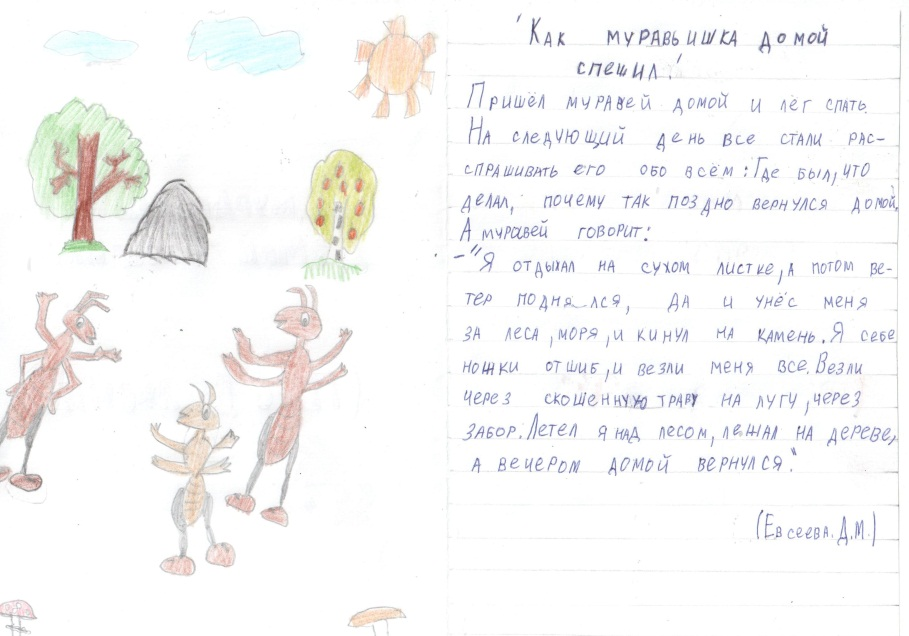 "Как муравьишка домой
спешил."
Пришёл муравей домой и лёг спать.
На следующий день все стали рас-
спрашивать его обо всём: Где был, что
делал, почему так поздно вернулся домой.
А муравей говорит:
-"Я отдыхал на сухом листке, а потом ве-
тер поднялся, да и унёс меня
за леса, моря, и кинул на камень. Я себе
ножки отшиб, и везли меня все. Везли
через скошенную траву на лугу, через
забор. Летел я над лесом, лежал на дереве,
а вечером домой вернулся."
(Евсеева.Д.М.)